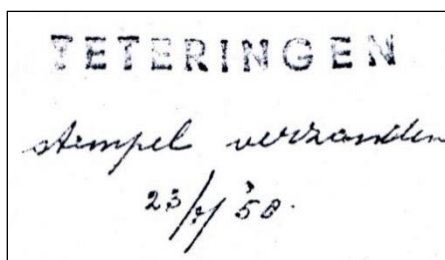 TETERINGEN
stempel verzonden
23/9/'58.